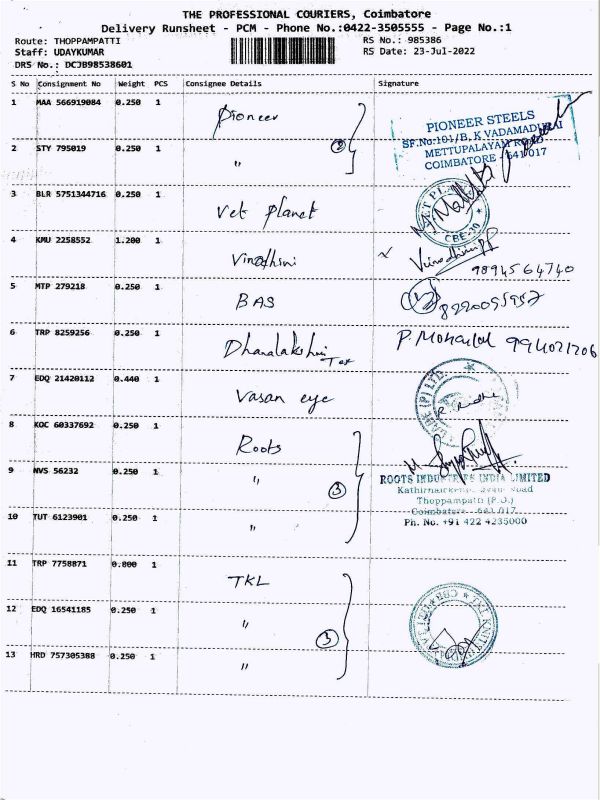 THE PROFESSIONAL COURIERS, Coimbatore
Delivery Runsheet - PCM - Phone No.:0422-3505555 - Page No.:1
Route: THOPPAMPATTI
Staff: UDAYKUMAR
DRS No.: DCJB98538601
RS No.: 985386
RS Date: 23-Jul-2022
S No Consignment No Weight PCS Consignee Details Signature
1 MAA 566919084 0.250 1 Pioneer
PIONEER STEELS
SF.No:101/B, K VADAMADURAI
METTUPALAYAM ROAD
COIMBATORE - 641 017
2 STY 795019 0.250 1 "
3 BLR 5751344716 0.250 1 Vet planet
CBE-30
4 KMU 2258552 1.200 1 Vinodhini
9894564740
5 MTP 279218 0.250 1 BAS
6 TRP 8259256 0.250 1 Dhanalakshmi Tex
P. Mohanlal
7 EDQ 21420112 0.440 1 Vasan eye
8 KQC 60337692 0.250 1 Roots
9 NVS 56232 0.250 1 " 3
ROOTS INDUSTRIES INDIA LIMITED
Thoppampatti (P.O.)
Coimbatore - 641 017
Ph. No. +91 422 4235000
10 TUT 6123901 0.250 1 "
11 TRP 7758871 0.800 1 TKL
12 EDQ 16541185 0.250 1 " 3
13 HRD 757305388 0.250 1 "